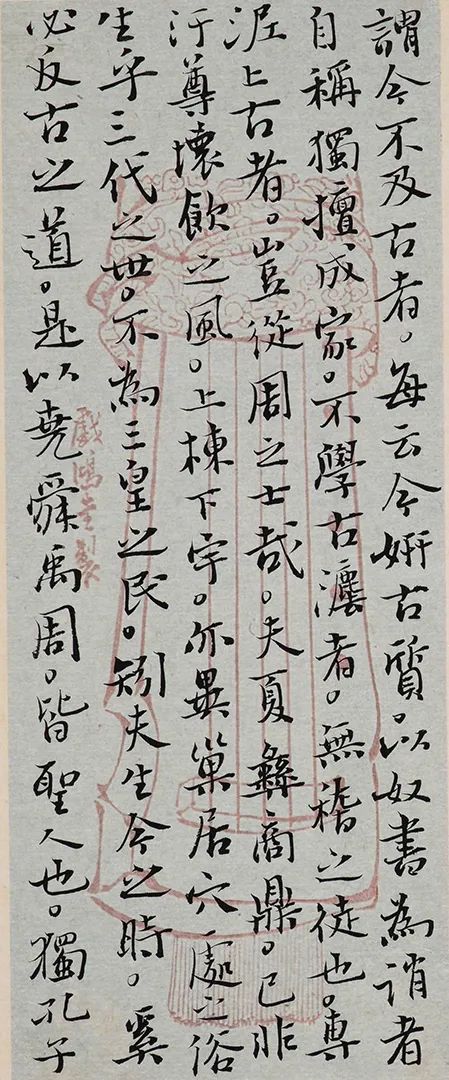 謂今不及古者。每云今妍古質。以奴書為誚者
自稱獨擅成家。不學古灋者。無稽之徒也。專
泥上古者。豈從周之士哉。夫夏彝商鼎。已非
汙尊壞飲之風。上棟下宇。亦異巢居穴處之俗
生乎三代之世。不為三皇之民。矧夫生今之時。奚
必反古之道。是以堯舜禹周。皆聖人也。獨孔子
戲鴻堂製